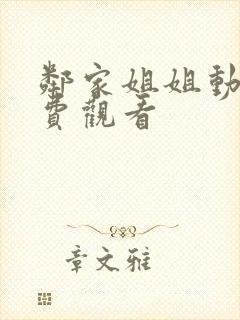 鄰家姐姐動
費觀看
章文雅